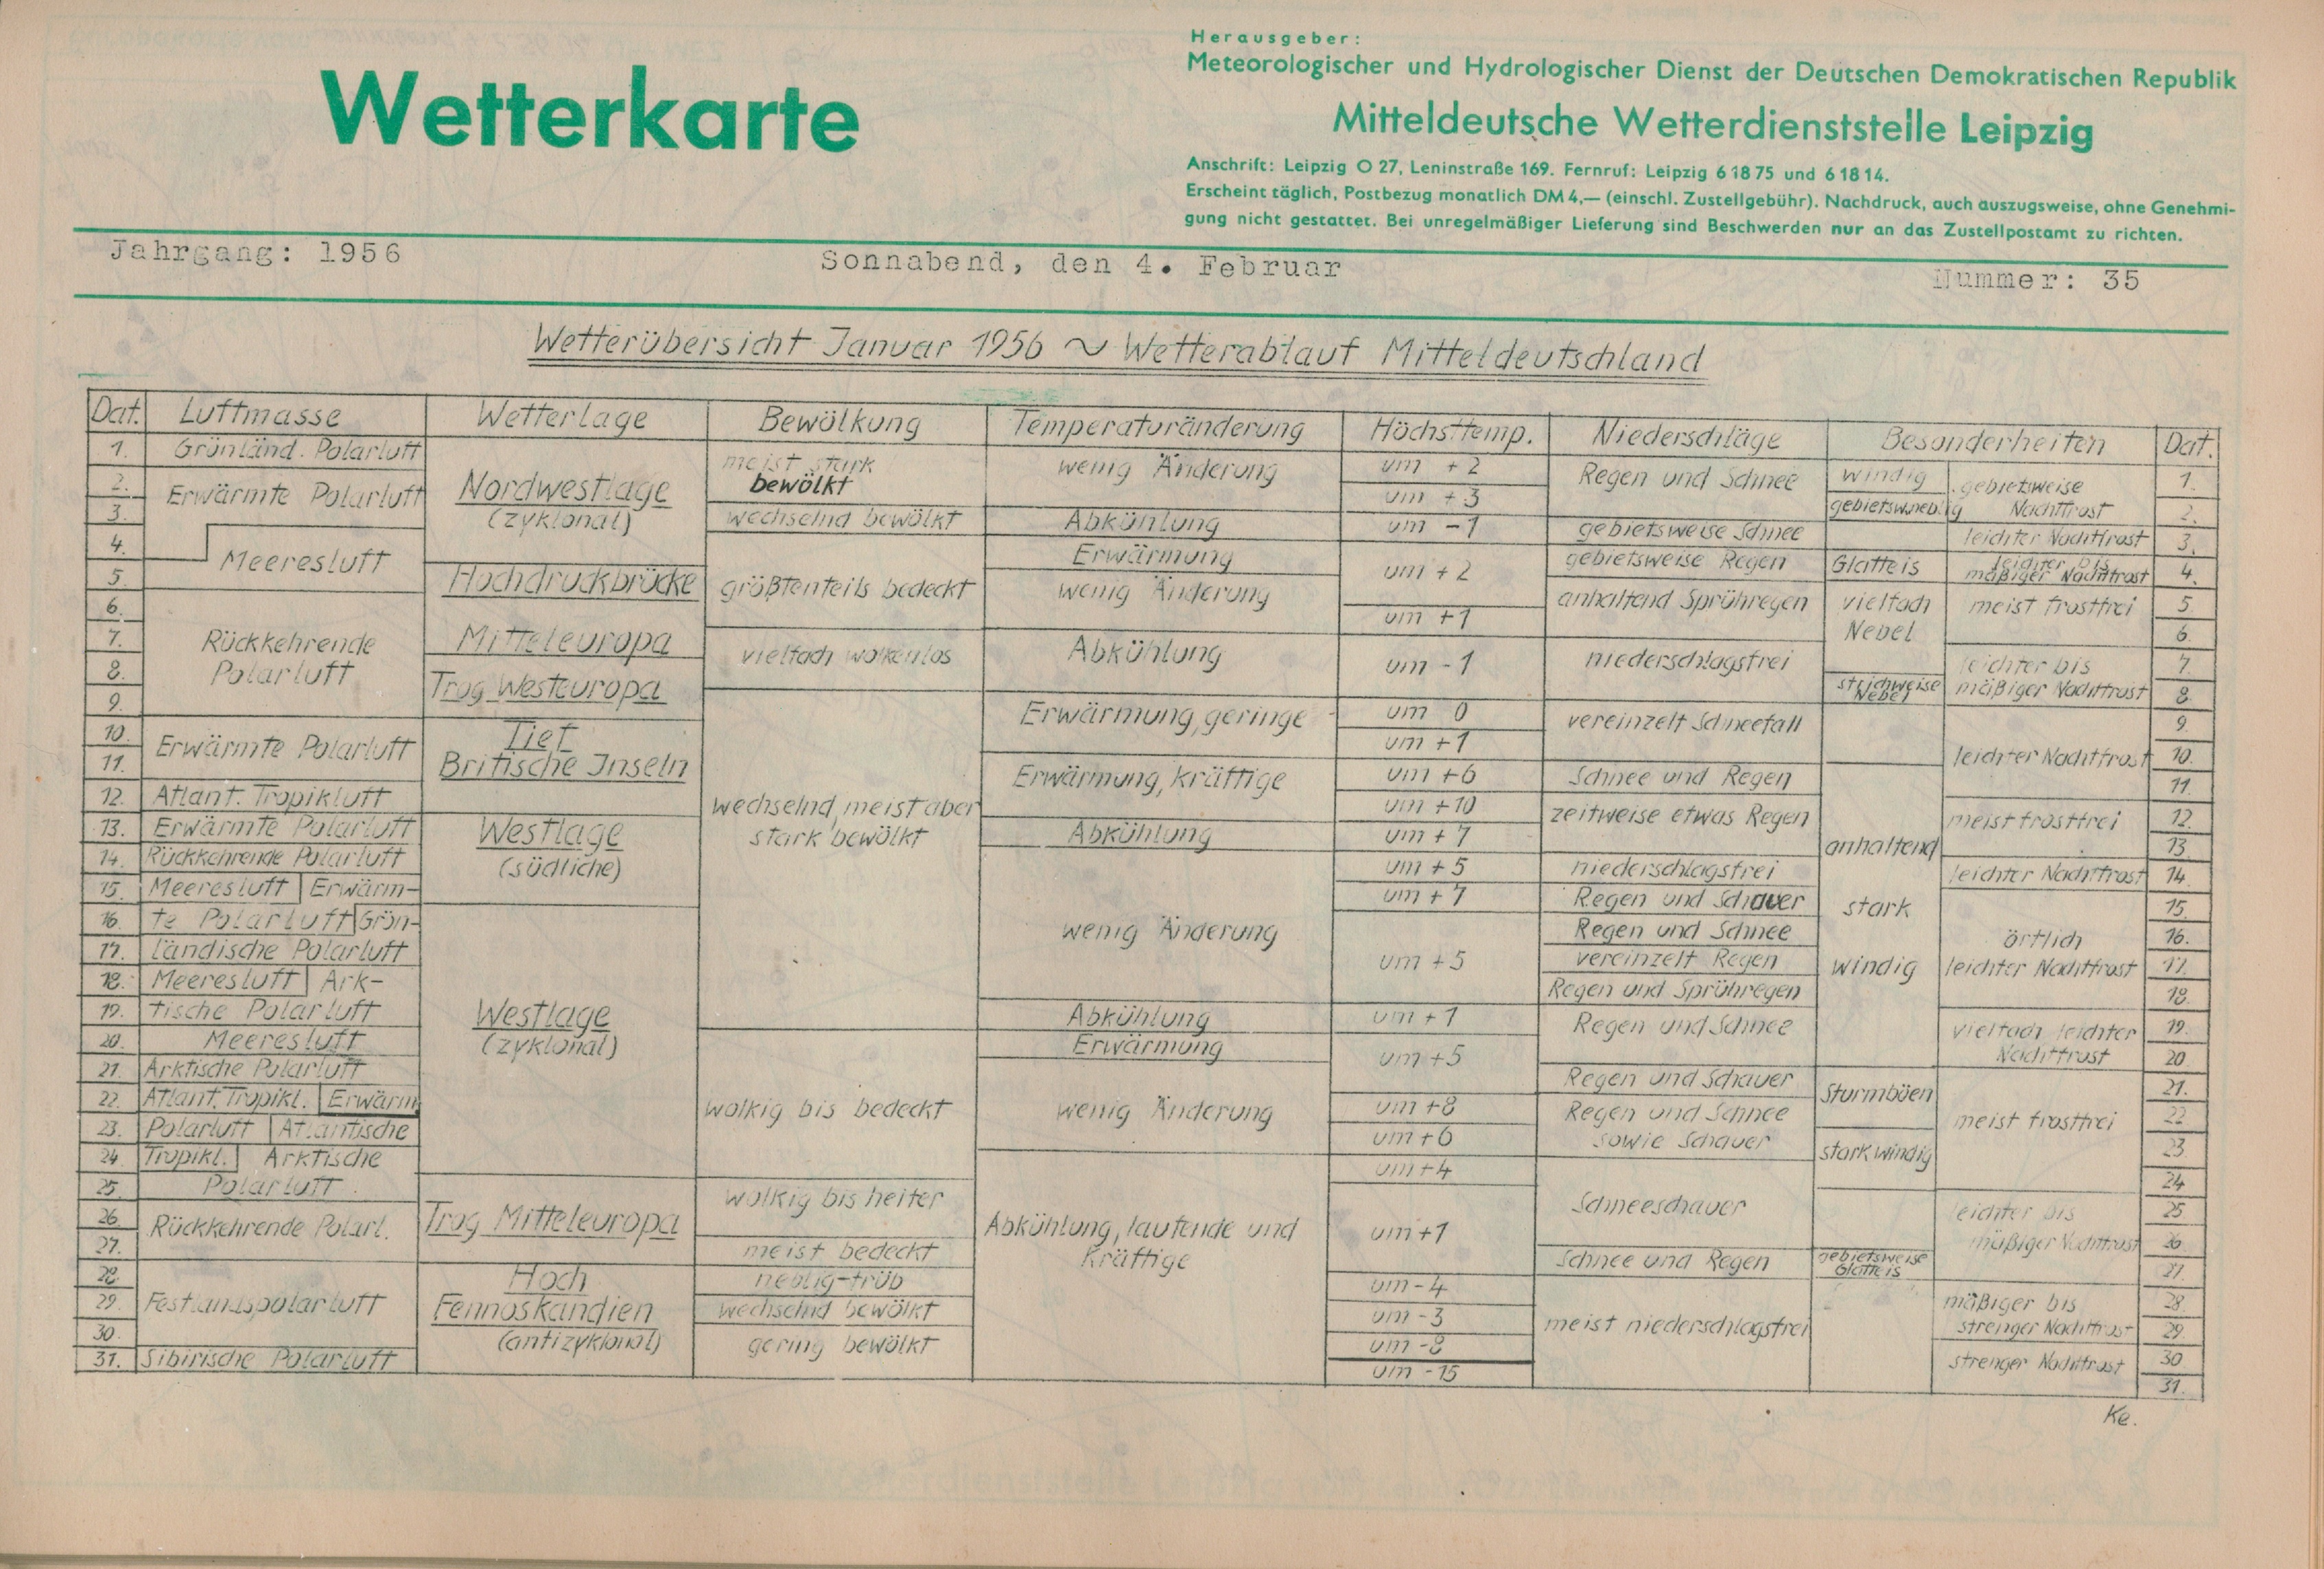 Wetterkarte
Herausgeber:
Meteorologischer und Hydrologischer Dienst der Deutschen Demokratischen Republik
Mitteldeutsche Wetterdienststelle Leipzig
Anschrift: Leipzig O 27, Leninstraße 169. Fernruf: Leipzig 6 18 75 und 6 18 14.
Erscheint täglich, Postbezug monatlich DM 4,— (einschl. Zustellgebühr). Nachdruck, auch auszugsweise, ohne Genehmi-
gung nicht gestattet. Bei unregelmäßiger Lieferung sind Beschwerden nur an das Zustellpostamt zu richten.
Jahrgang: 1956 Sonnabend, den 4. Februar Nummer: 35
Wetterübersicht Januar 1956 ~ Wetterablauf Mitteldeutschland
Dat. Luftmasse Wetterlage Bewölkung Temperaturänderung Höchsttemp. Niederschläge Besonderheiten Dat.
1.
2.
3.
4.
5.
6.
7.
8.
9.
10.
11.
12.
13.
14.
15.
16.
17.
18.
19.
20.
21.
22.
23.
24.
25.
26.
27.
28.
29.
30.
31.
Grönländ. Polarluft
Erwärmte Polarluft
Meeresluft
Rückkehrende
Polarluft
Erwärmte Polarluft
Atlant. Tropikluft
Erwärmte Polarluft
Rückkehrende Polarluft
Meeresluft Erwärm-
te Polarluft Grön-
ländische Polarluft
Meeresluft Ark-
tische Polarluft
Meeresluft
Arktische Polarluft
Atlant. Tropikl. Erwärm
Polarluft Atlantische
Tropikl. Arktische
Polarluft
Rückkehrende Polarl.
Festlandspolarluft
Sibirische Polarluft
Nordwestlage
(zyklonal)
Hochdruckbrücke
Mitteleuropa
Trog Westeuropa
Tief
Britische Inseln
Westlage
(südliche)
Westlage
(zyklonal)
Trog Mitteleuropa
Hoch
Fennoskandien
(antizyklonal)
meist stark
bewölkt
wechselnd bewölkt
größtenteils bedeckt
vielfach wolkenlos
wechselnd, meist aber
stark bewölkt
wolkig bis bedeckt
wolkig bis heiter
meist bedeckt
neblig-trüb
wechselnd bewölkt
gering bewölkt
wenig Änderung
Abkühlung
Erwärmung
wenig Änderung
Abkühlung
Erwärmung, geringe
Erwärmung, kräftige
Abkühlung
wenig Änderung
Abkühlung
Erwärmung
wenig Änderung
Abkühlung, laufende und
kräftige
um +2
um +3
um -1
um +2
um +1
um -1
um 0
um +1
um +6
um +10
um +7
um +5
um +7
um +5
um +1
um +5
um +8
um +6
um +4
um +1
um -4
um -3
um -8
um -15
Regen und Schnee
gebietsweise Schnee
gebietsweise Regen
anhaltend Sprühregen
niederschlagsfrei
vereinzelt Schneefall
Schnee und Regen
zeitweise etwas Regen
niederschlagsfrei
Regen und Schauer
Regen und Schnee
vereinzelt Regen
Regen und Sprühregen
Regen und Schnee
Regen und Schauer
Regen und Schnee
sowie Schauer
Schneeschauer
Schnee und Regen
meist niederschlagsfrei
windig
gebietsw.neblig
Glatteis
vielfach
Nebel
strichweise
Nebel
anhaltend
stark
windig
Sturmböen
stark windig
gebietsweise
Glatteis
gebietsweise
Nachtfrost
leichter Nachtfrost
leichter bis
mäßiger Nachtfrost
meist frostfrei
leichter bis
mäßiger Nachtfrost
leichter Nachtfrost
meist frostfrei
leichter Nachtfrost
örtlich
leichter Nachtfrost
vielfach leichter
Nachtfrost
meist frostfrei
leichter bis
mäßiger Nachtfrost
mäßiger bis
strenger Nachtfrost
strenger Nachtfrost
1.
2.
3.
4.
5.
6.
7.
8.
9.
10.
11.
12.
13.
14.
15.
16.
17.
18.
19.
20.
21.
22
23.
24
25
26
27.
28
29.
30
31.
Ke.